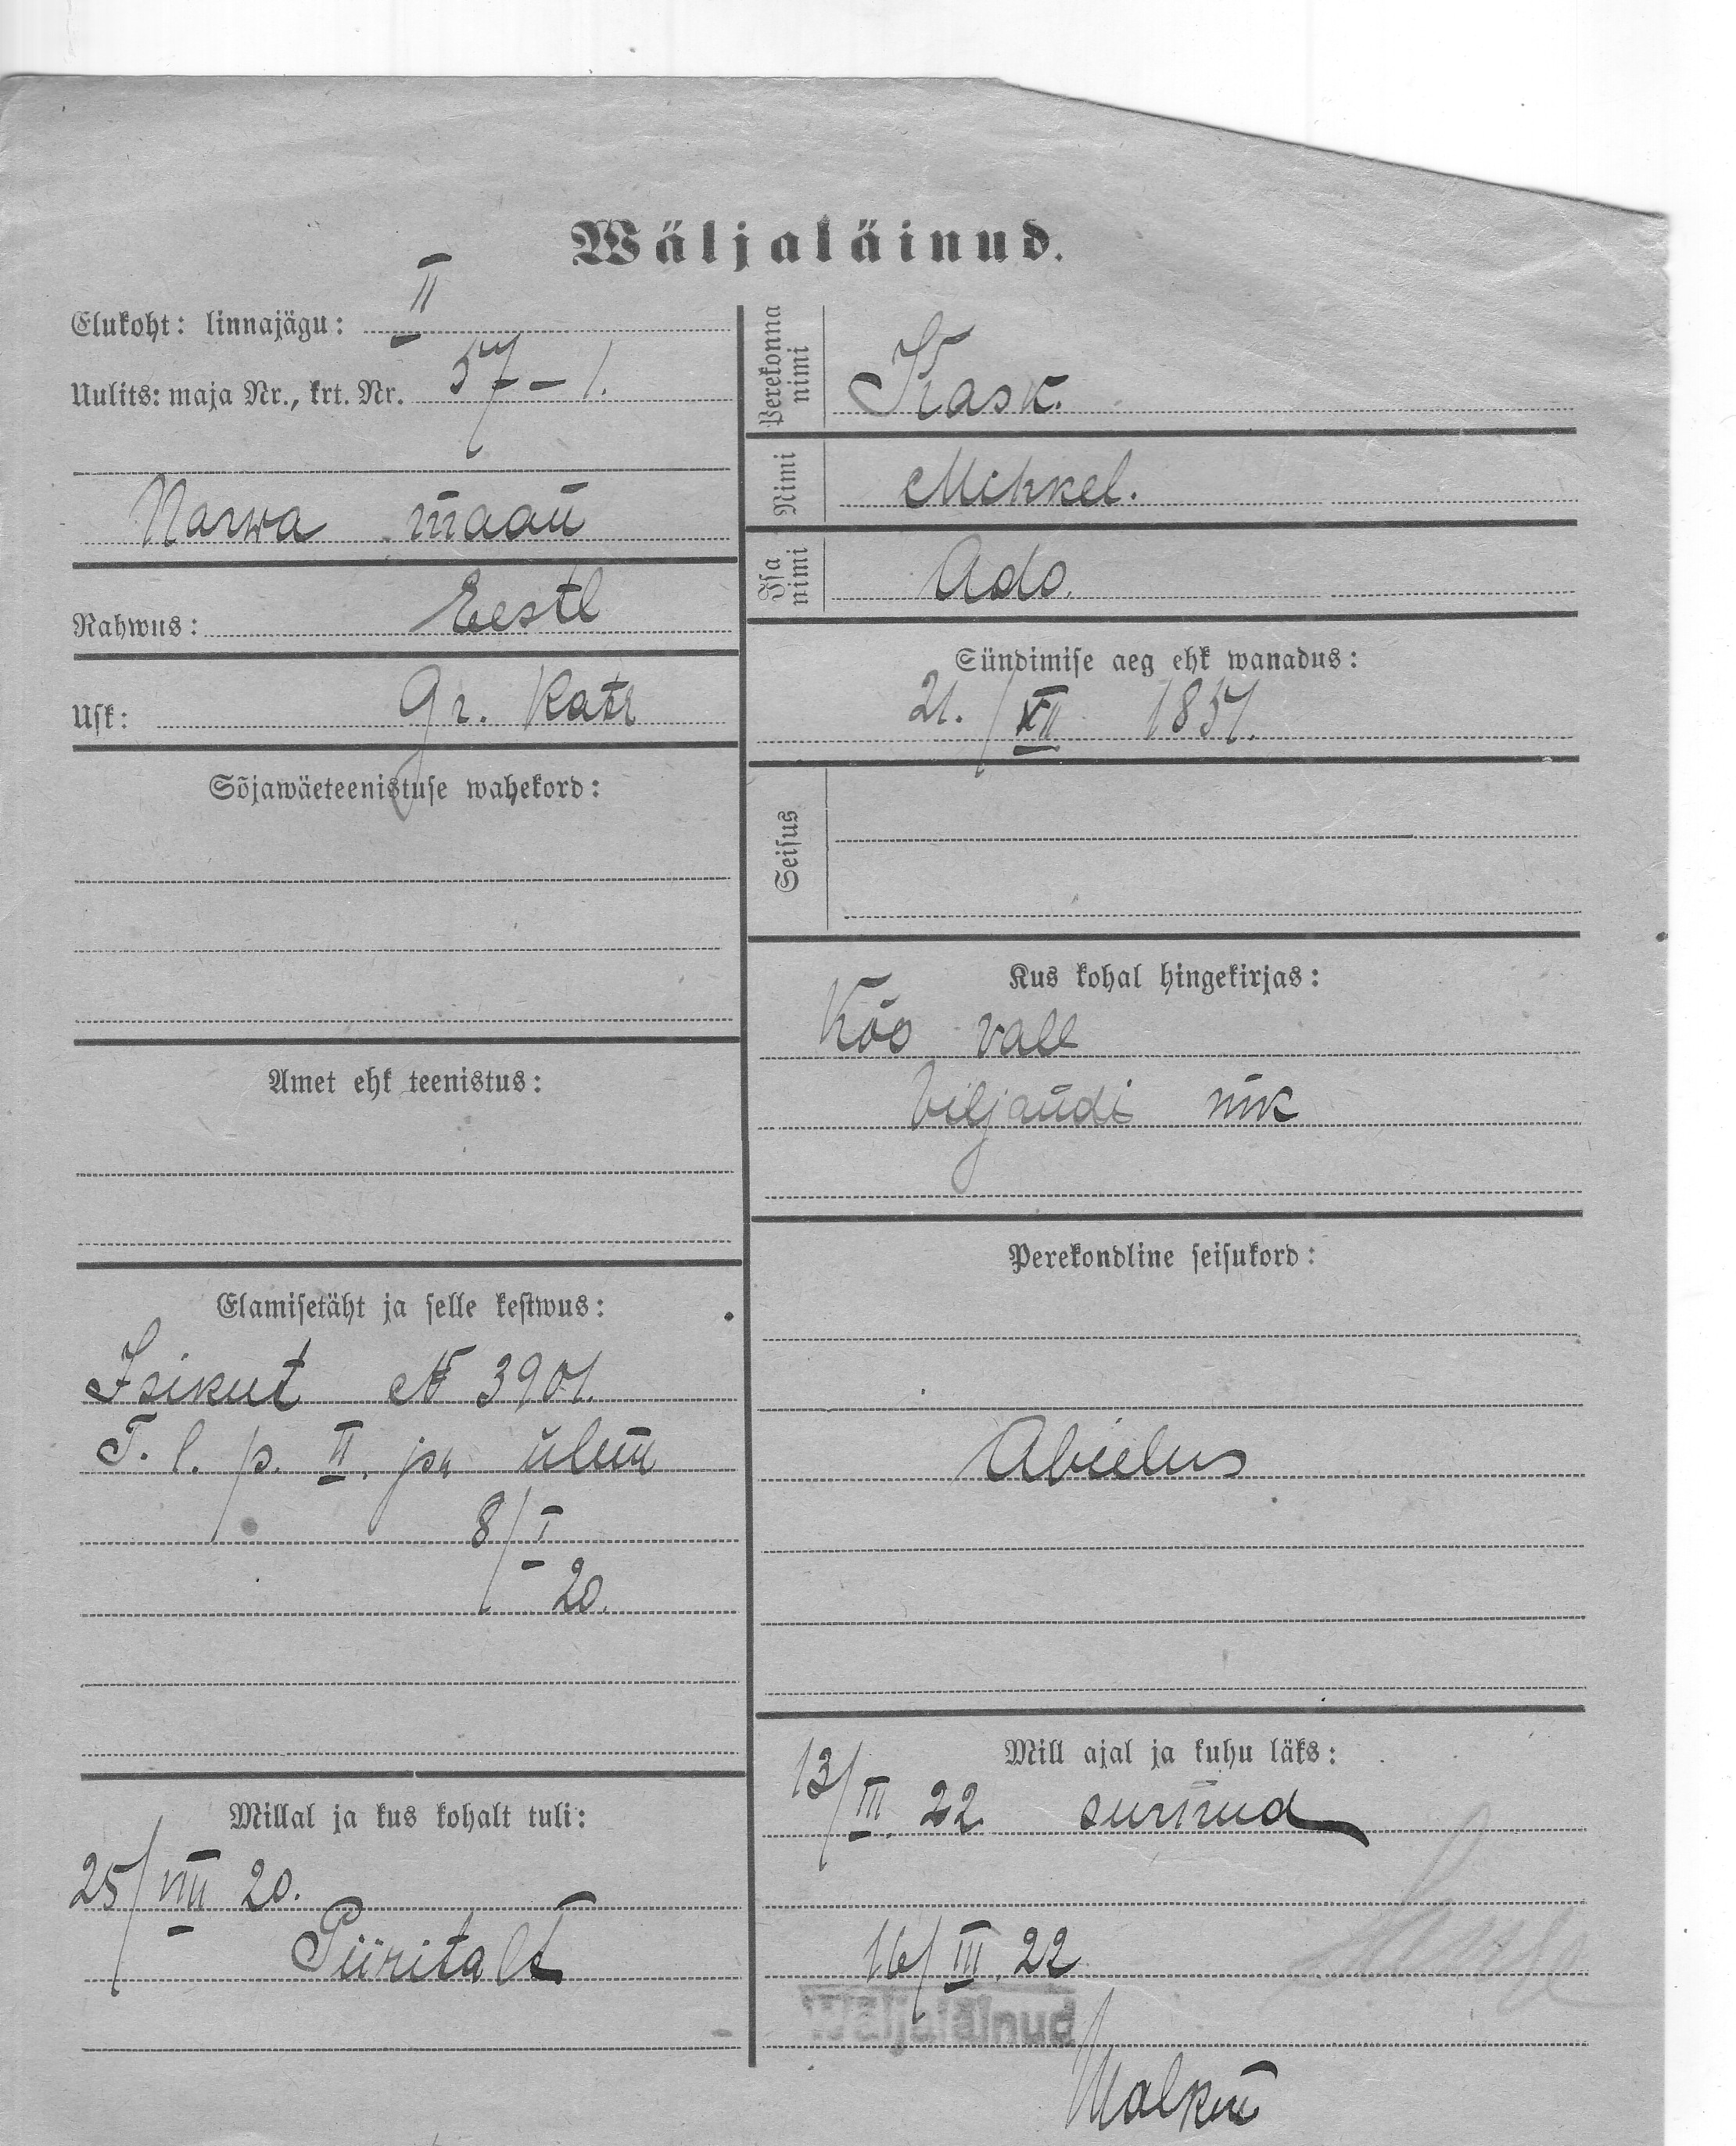 Wäljaläinud.
Elukoht: linnajägu: II
Uulits: maja Nr., krt. Nr. 57 – 1.
Narwa maan
Rahwus: Eestl
Usk: Gr. Katr
Sõjawäeteenistuse wahekord:
Amet ehk teenistus:
Elamisetäht ja selle kestwus:
Isikut № 3901.
T. l. p. II. jsk ülem
8/I
20.
Millal ja kus kohalt tuli:
25/VIII 20.
Piiritalt
Perekonna nimi
Kask.
Nimi
Mihkel.
Isa nimi
Ado.
Sündimise aeg ehk wanadus:
21./XII 1857.
Seisus
Kus kohal hingekirjas:
Kõo vall
Viljandi mk
Perekondline seisukord:
Abielus
Mill ajal ja kuhu läks:
13/III 22 surnud
16/III. 22
Wäljaläinud